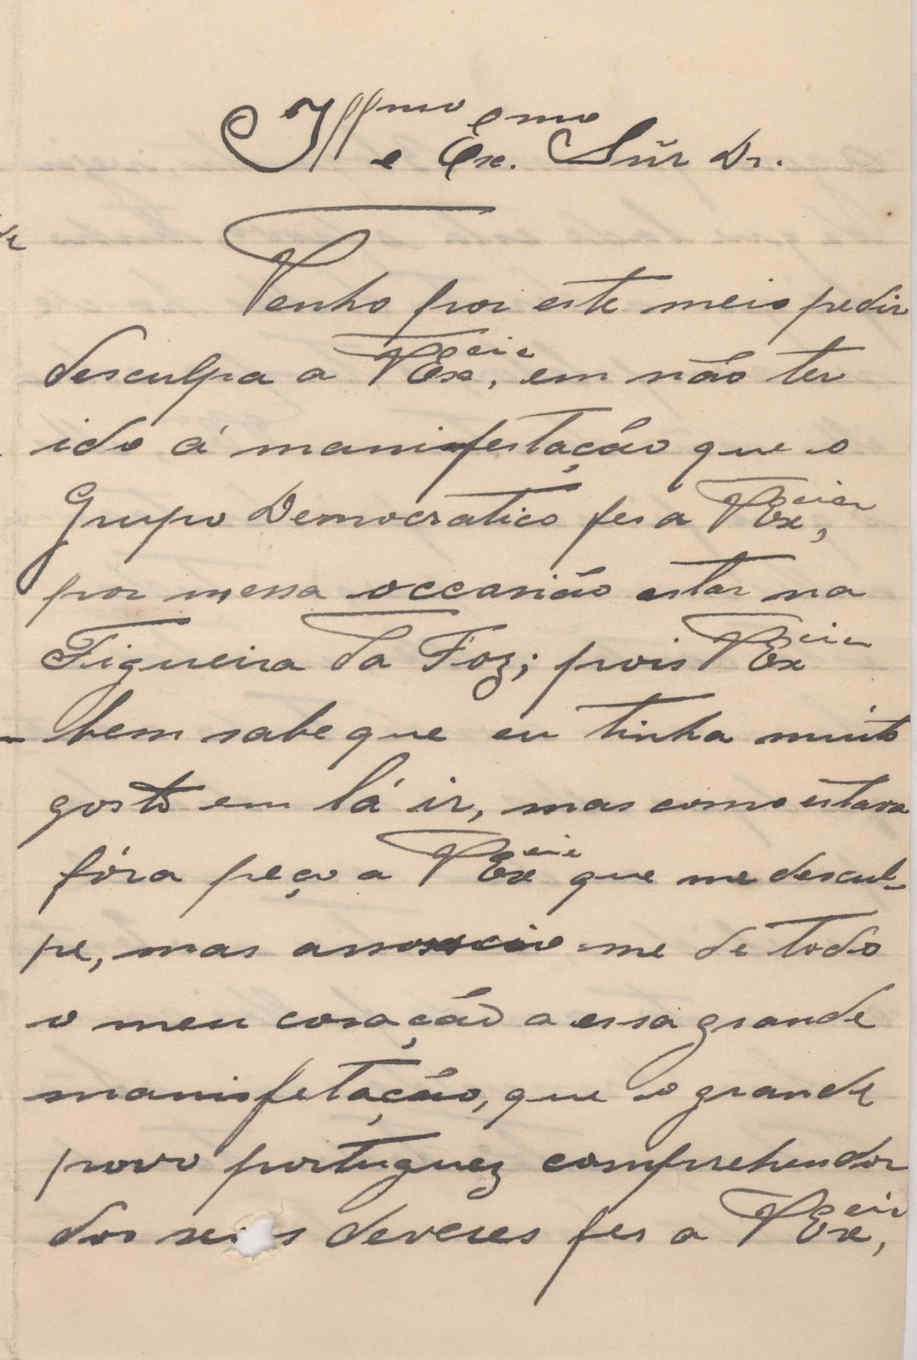 Illmo e Exmo. Snr Dr.
Venho por este meio pedir
desculpa a V Excia, em não ter
ido á manifestação que o
Grupo Democratico fes a V Excia,
por nessa occasião estar na
Figueira da Foz; pois V Excia
bem sabe que eu tinha muito
gosto em lá ir, mas como estava
fóra peço a V Excia que me descul-
pe, mas associo-me de todo
o meu coração a essa grande
manisfetação, que o grande
povo portuguez comprehendor
dos seus deveres fes a V Excia,